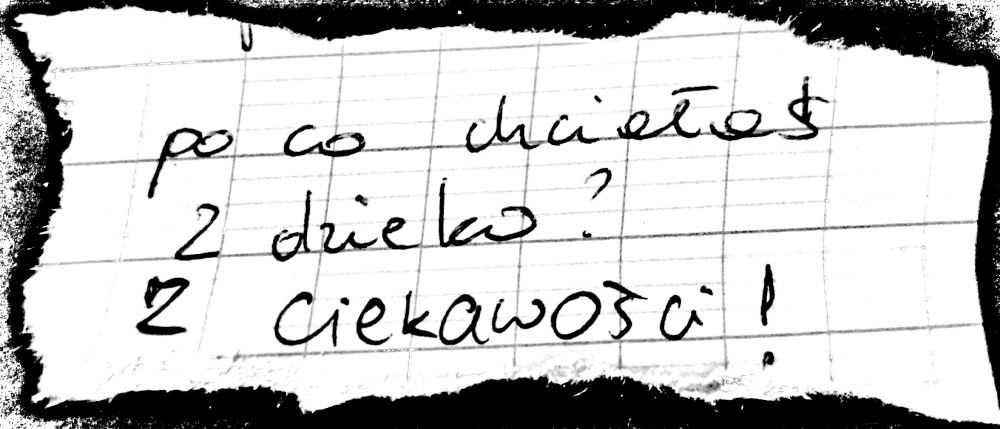 po co chciałaś
2 dziecko?
Z ciekawości!